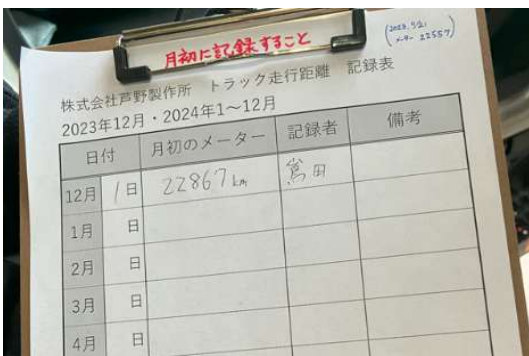 月初に記録すること
(2023.9/21
メーター 22557)
株式会社芦野製作所 トラック走行距離 記録表
2023年12月・2024年1～12月
日付 月初のメーター 記録者 備考
12月 1日 22867km 嶌田
1月 日
2月 日
3月 日
4月 日